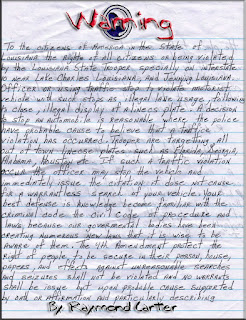 Warning
To the citizens of America in the State of
Louisiana the Rights of all citizens are being violated
by the Louisiana State Trooper, specially on interstate
10 near Lake Charles Louisiana, and Jenning Louisiana.
Officer are using traffic stop to violate motorist
vehicle with such stops as, illegal lane usage, following
to close, illegal display of a license plate. A decision
to stop an automobile is reasonable where the police
have probable cause to believe that a traffic
violation has occurred. Troopers are targeting all
out of town license plates such as Texas, Georgia,
Alabama, Houston etc. If such a traffic violation
occur the officer may stop the vehicle and
immediately issue the citation, it does not cause
for a warrantless search of your vehicle. Your
best defense is knowledge become familiar with the
criminal code the civil code of procedure and
laws, because our governmental bodies have been
creating numerous new laws that it is wise to be
aware of them. The 4th Amendment protect the
right of people to be secure in their person, house,
papers, and effects against unreasonable searches
and seizures shall not be violated and no warrants
shall be issue but upon probable cause supported
by oath or affirmation and particularly describing
By Raymond Carter